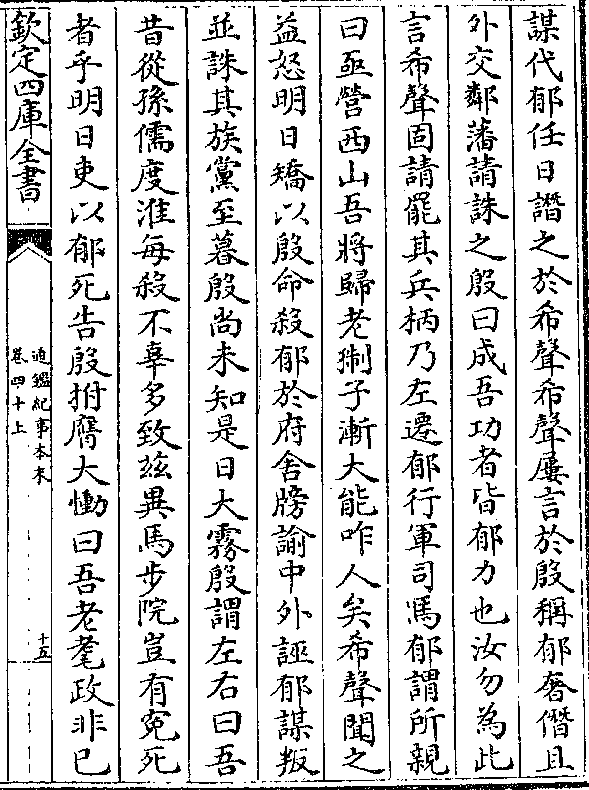 謀代郁任日譖之於希聲希聲屢言於殷稱郁奢僭且
外交鄰藩請誅之殷曰成吾功者皆郁力也汝勿為此
言希聲固請罷其兵柄乃左遷郁行軍司馬郁謂所親
曰亟營西山吾將歸老猘子漸大能咋人矣希聲聞之
益怒明日矯以殷命殺郁於府舍牓諭中外誣郁謀叛
並誅其族黨至暮殷尚未知是日大霧殷謂左右曰吾
昔從孫儒度淮每殺不辜多致兹異馬步院豈有寃死
者乎明日吏以郁死告殷拊膺大慟曰吾老耄政非已
欽定四庫全書
通鑑紀事本末
卷四十上
十五